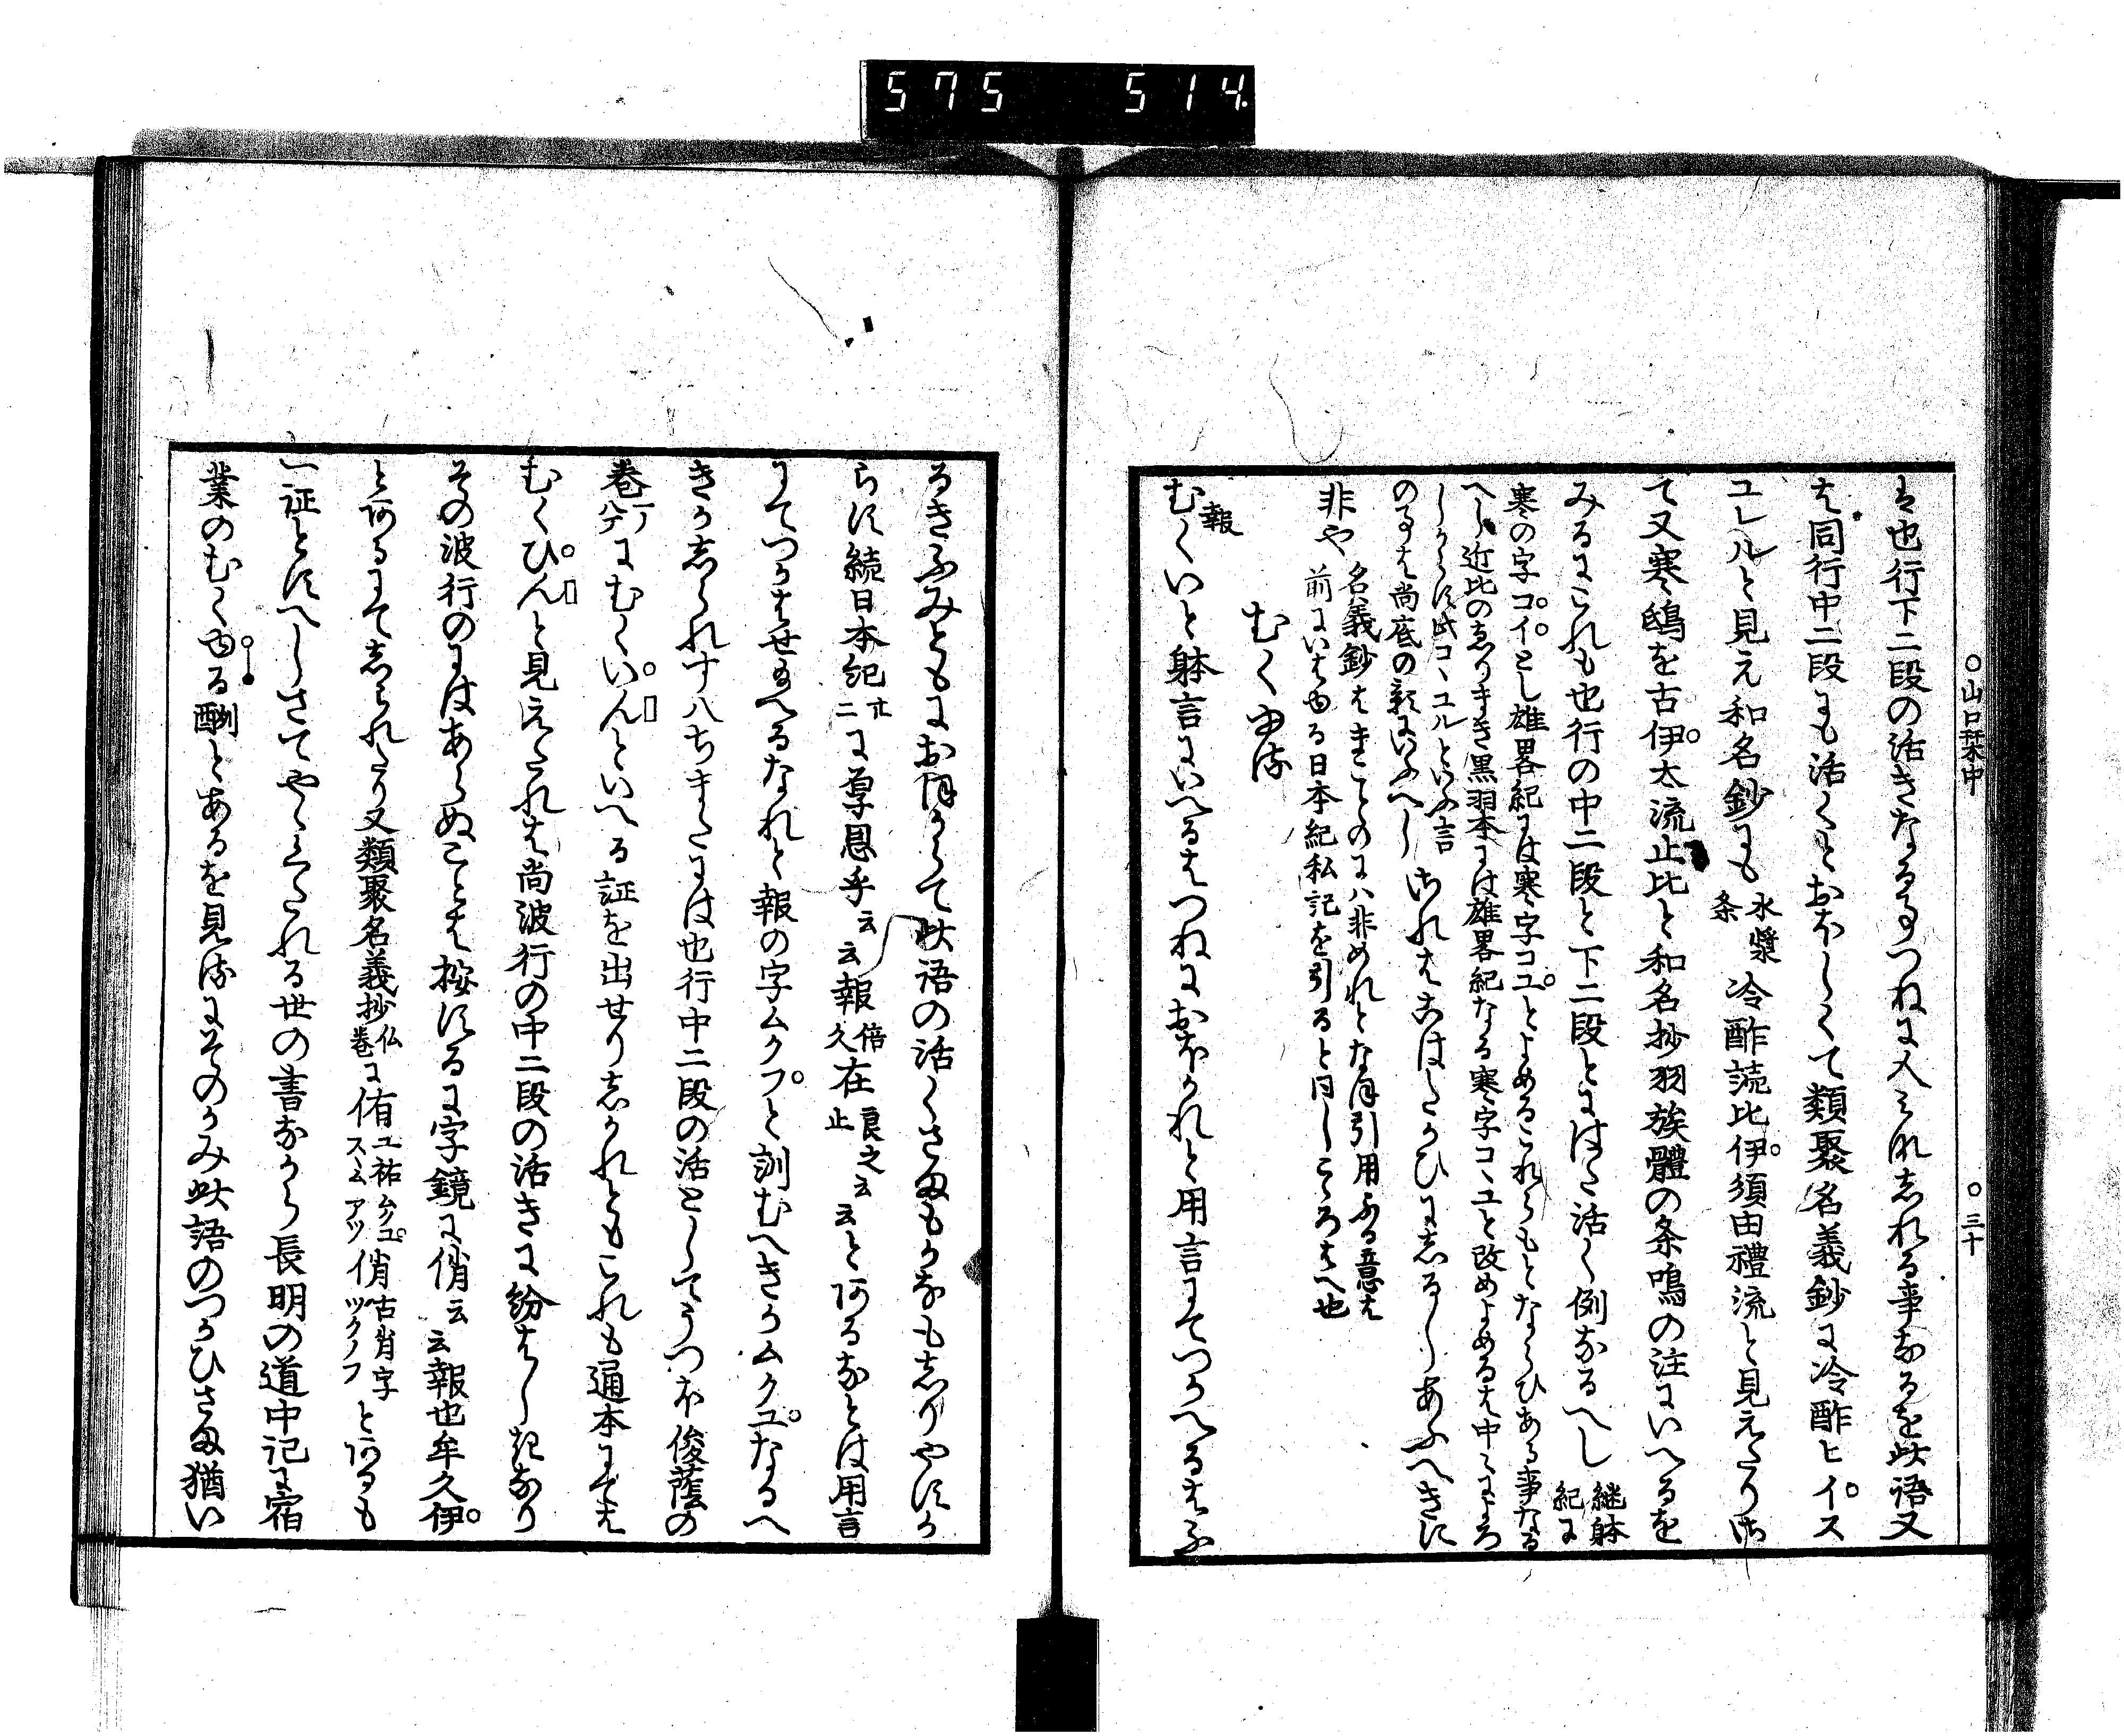 575 514
○山口栞中 ○三十
は也行下二段の活きなる事つねに人みれしれる事なるを此語又
は同行中二段にも活くとおほしくて類聚名義鈔に冷酢ヒイス
ユレルと見え和名鈔にも 水漿条 冷酢読比伊須由禮流と見えたりさ
て又寒鴟を古伊太流止比と和名抄羽族體の条鳴の注にいへるを
みるにこれも也行の中二段と下二段とにはた活く例なるへし 継躰紀に
寒の字コイとし雄畧紀には寒字コユとよめるこれらもとならひある事なる
へし近比のゑりまき黒羽本には雄畧紀なる寒字コヽユと改めよめるは中々によろ
しからす此コヽユルといふ言
の事は尚底の親にいふへし されはこはたかひにしるしあふへきに
非や 名義鈔はまことのにハ非めれとな引用ふる意は
前にいはゆる日本紀私記を引ると同しこゝろはへ也
むくゆる
報
むくいと躰言にいへるはつねにおほかれと用言にてつかへるはふ
るきふみともにおほからて此語の活くさまもかなも志りやすか
らす続日本紀二十二に厚恩乎云云報倍久在良之止云云と有るなとは用言
にてつかはせ給へるなれと報の字ムクフと訓むへきかムクユなるへ
きかしられす八ちまたには也行中二段の活としてうつほ俊蔭の
巻八十一丁にむくいんといへる証を出せりしかれともこれも通本にては
むくひんと見えたれは尚波行の中二段の活きに紛はし然なり
その波行のにはあらぬことは按するに字鏡に俏云云報也牟久伊
と有るにてしられたり又類聚名義抄仏巻に侑ユスム祐ムクユアツ俏古肖字ツクノフと有るも
一証とすへしさてやゝくたれる世の書なから長明の道中記に宿
業のむくゆる酬とあるを見るにそのかみ此語のつかひさま猶い